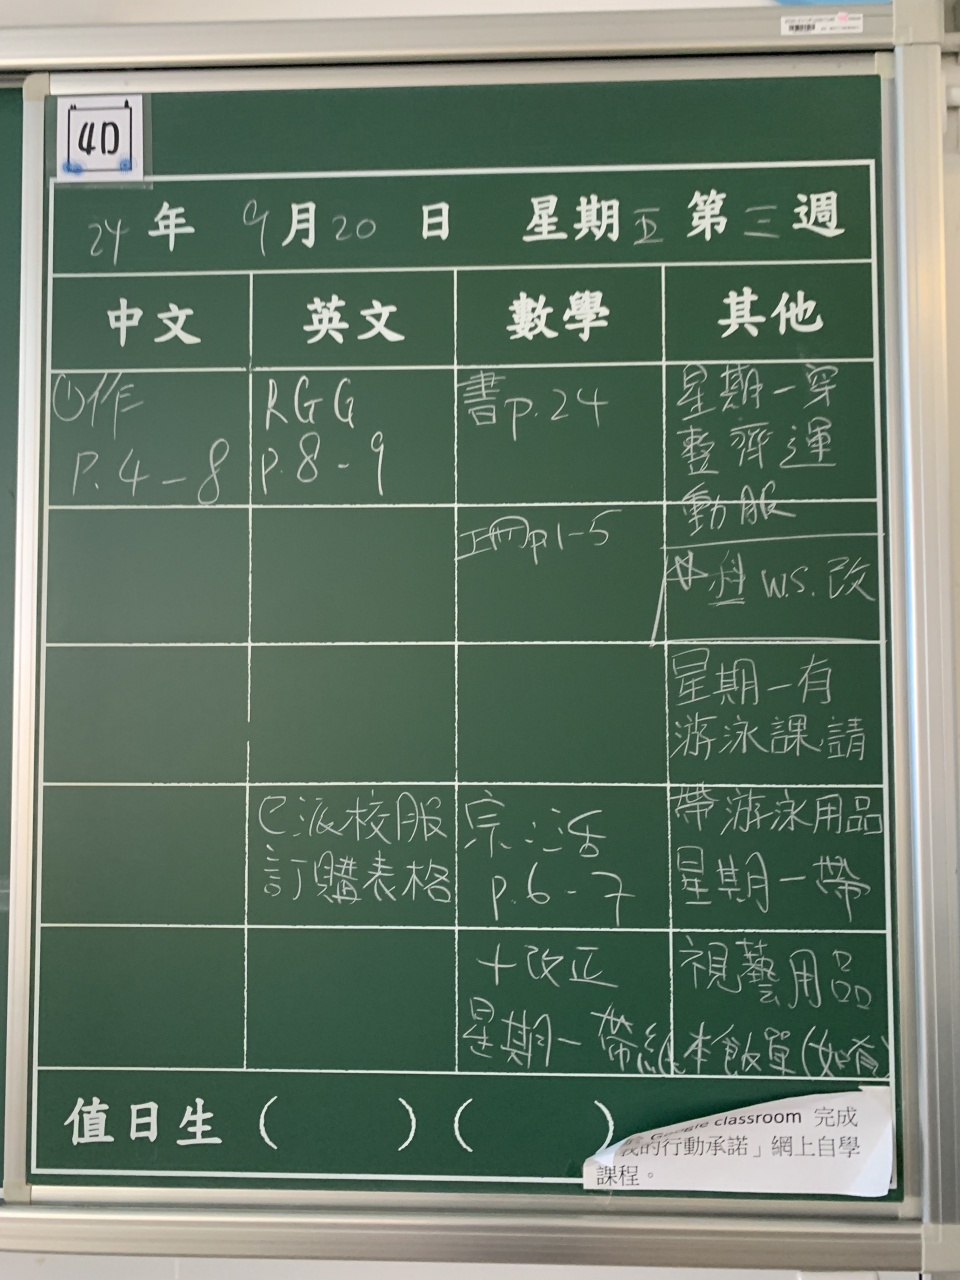 4D
24年 9月20日 星期五 第三週
中文 英文 數學 其他
①作
P.4-8
RGG
P.8-9
書p.24
星期一穿
整齊運
動服
冊p.1-5
科 W.S. 改
星期一有
游泳課,請
帶游泳用品
已派校服
訂購表格
宗:活
p.6-7
星期一帶
視藝用品
+改正
星期一帶紙本飯單(如有)
值日生 ( ) ( )
Google classroom 完成
我的行動承諾」網上自學
課程。